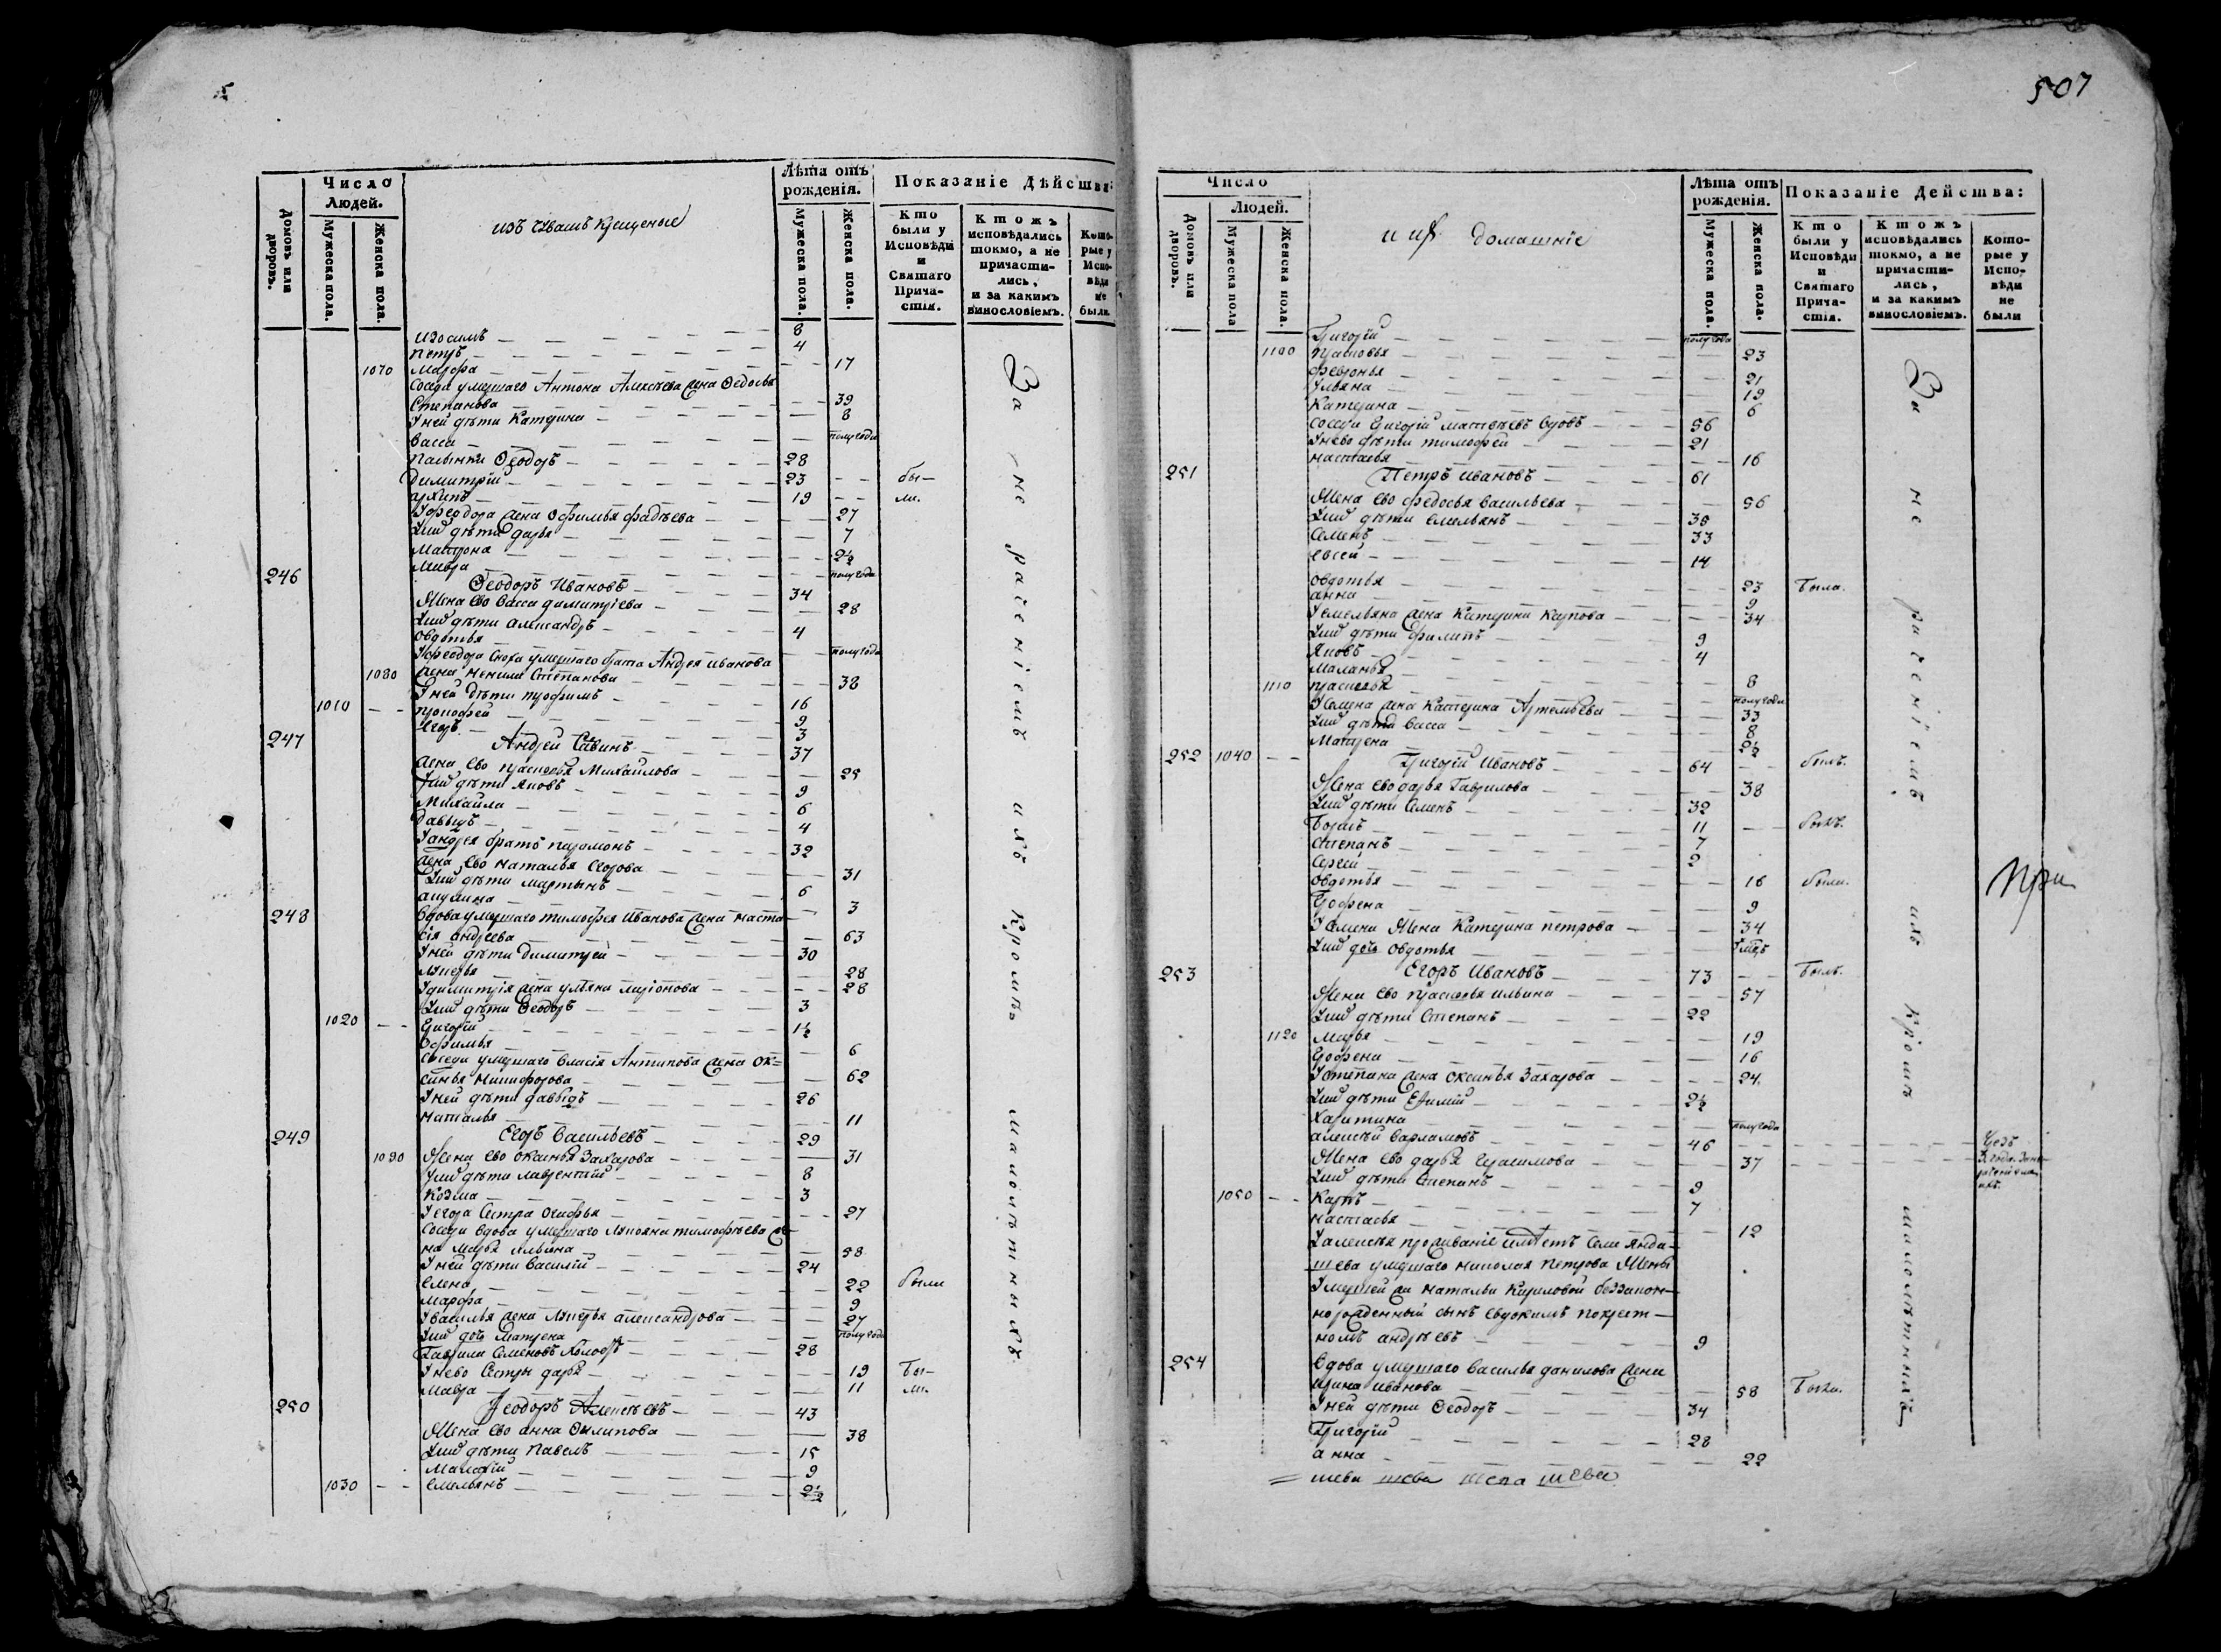 507
Число Людей.
Лѣта отъ рожденія.
Показаніе Дѣйства:
Домовъ или дворовъ.
Мужеска пола.
Женска пола.
изъ Чувашъ крещеные
Мужеска пола.
Женска пола.
Кто были у Исповѣди и Святаго Прича-стія.
Ктожъ исповѣдались токмо, а не причасти-лись, и за какимъ винословіемъ.
Кото-рые у Испо-вѣди не были
Изосимъ 8
Петръ 4
1070 Марфа 17
Соседа умершаго Антона Алексѣева жена Федосья
Степанова 39
У ней дѣти Катерина 8
Васса полугода
Пасынки Ѳеодоръ 28
Димитрій 23 бы-
Архипъ 19 ли.
У Ѳеодора жена Офимья Фадѣева 27
У них дѣти Дарья 7
Матрона 2½
Мавра полугода
246 Ѳеодоръ Ивановъ 34
Жена ево Васса Димитріева 28
У них дѣти Александръ 4
Овдотья полугода
У Ѳеодора сноха умершаго брата Андрея Иванова
1080 жена Ненила Степанова 38
У ней дѣти Трофимъ 16
1010 Прокофей 9
Егоръ 3
247 Андрей Савинъ 37
Жена ево Прасковья Михайлова 25
У них дѣти Яковъ 9
Михайла 6
Давыдъ 4
У Андрея братъ Парамонъ 32
Жена ево Наталья Егорова 31
У них дѣти Мартынъ 6
Акулина 3
248 Вдова умершаго Тимофея Иванова жена Наста
сія Андреева 63
У ней дѣти Димитрей 30
Лукерья 28
У Димитрія жена Ульяна Ларіонова 28
У них дѣти Ѳеодоръ 3
1020 Григорій 1½
Офимья 6
Соседи умершаго Власія Антипова жена Ок=
синья Никифорова 62
У ней дѣти Давыдъ 26
Наталья 11
249 Егоръ Васильевъ 29
1090 Жена ево Оксинья Захарова 31
У них дѣти Лаврентій 8
Козма 3
У Егора сестра Огафья 27
Соседи вдова умершаго Лукояна Тимофѣева же-
на Марья Ильина 58
У ней дѣти Василій 24
Елена 22 были
Марфа 9
У Василья жена Лукерья Александрова 27
У них дочь Матрена полугода
Гаврила Семеновъ 28
У нево сестры Дарья 19 Бы-
Мавра 11 ли.
250 Ѳеодоръ Алексѣевъ 43
Жена ево Анна Филипова 38
У них дѣти Павелъ 15
Малафій 9
1030 Емельянъ 2½
За не раченіемъ ихъ Кромѣ малолѣтныхъ.
Число Людей.
Лѣта отъ рожденія.
Показаніе Действа:
Домовъ или дворовъ.
Мужеска пола
Женска пола.
и их домашніе
Мужеска пола.
Женска пола.
Кто были у Исповѣди и Святаго Прича-стія.
Ктожъ исповѣдались токмо, а не причасти-лись, и за какимъ винословіемъ.
Кото-рые у Испо-вѣди не были
Григорій полугода
1100 Прасковья 23
Февронья 21
Ульяна 19
Катерина 6
Соседи Григорій Матвѣевъ 56
У нево дѣти Тимофей 21
Настасья 16
251 Петръ Ивановъ 61
Жена ево Федосья Васильева 56
У них дѣти Емельянъ 38
Семенъ 33
Евсей 14
Овдотья 23 Была.
Анна 9
У Емельяна жена Катерина Карпова 34
У них дѣти Филипъ 9
Яковъ 4
Маланья 8
1110 Прасковья полугода
У Семена жена Катерина Артемьева 33
У них дѣти Васса 8
Матрена 2½
252 1040 Григорій Ивановъ 64 былъ.
Жена ево Дарья Гаврилова 38
У них дѣти Семенъ 32
Борисъ 11 былъ.
Степанъ 7
Сергей 2
Овдотья 16 была.
Грофена 9
У Семена жена Катерина Петрова 34
У них дочь Овдотья
253 Егоръ Ивановъ 73 Былъ.
Жена ево Прасковья Ильина 57
У них дѣти Степанъ 22
1120 Марья 19
Грофена 16
У Степана жена Оксинья Захарова 24
У них дѣти Ефимій 2½
Харитина полугода
Алексѣй Варламовъ 46
Жена ево Дарья Герасимова 37
У них дѣти Степанъ 9
1050 Карпъ 7
Настасья 12
У Алексѣя проживаніе имѣетъ села Янда-
шева умершаго Николая Петрова жены
умершей же Натальи Кириловой беззакон-
норожденный сынъ Евдокимъ по крест-
номъ Андрѣевъ 9
254 Вдова умершаго Василья Данилова жена
Ирина Иванова 58 Была.
У ней дѣти Ѳеодоръ 34
Григорій 28
Анна 22
= шева шева шева шева
За не раченіемъ ихъ Кромѣ малолѣтныхъ
При